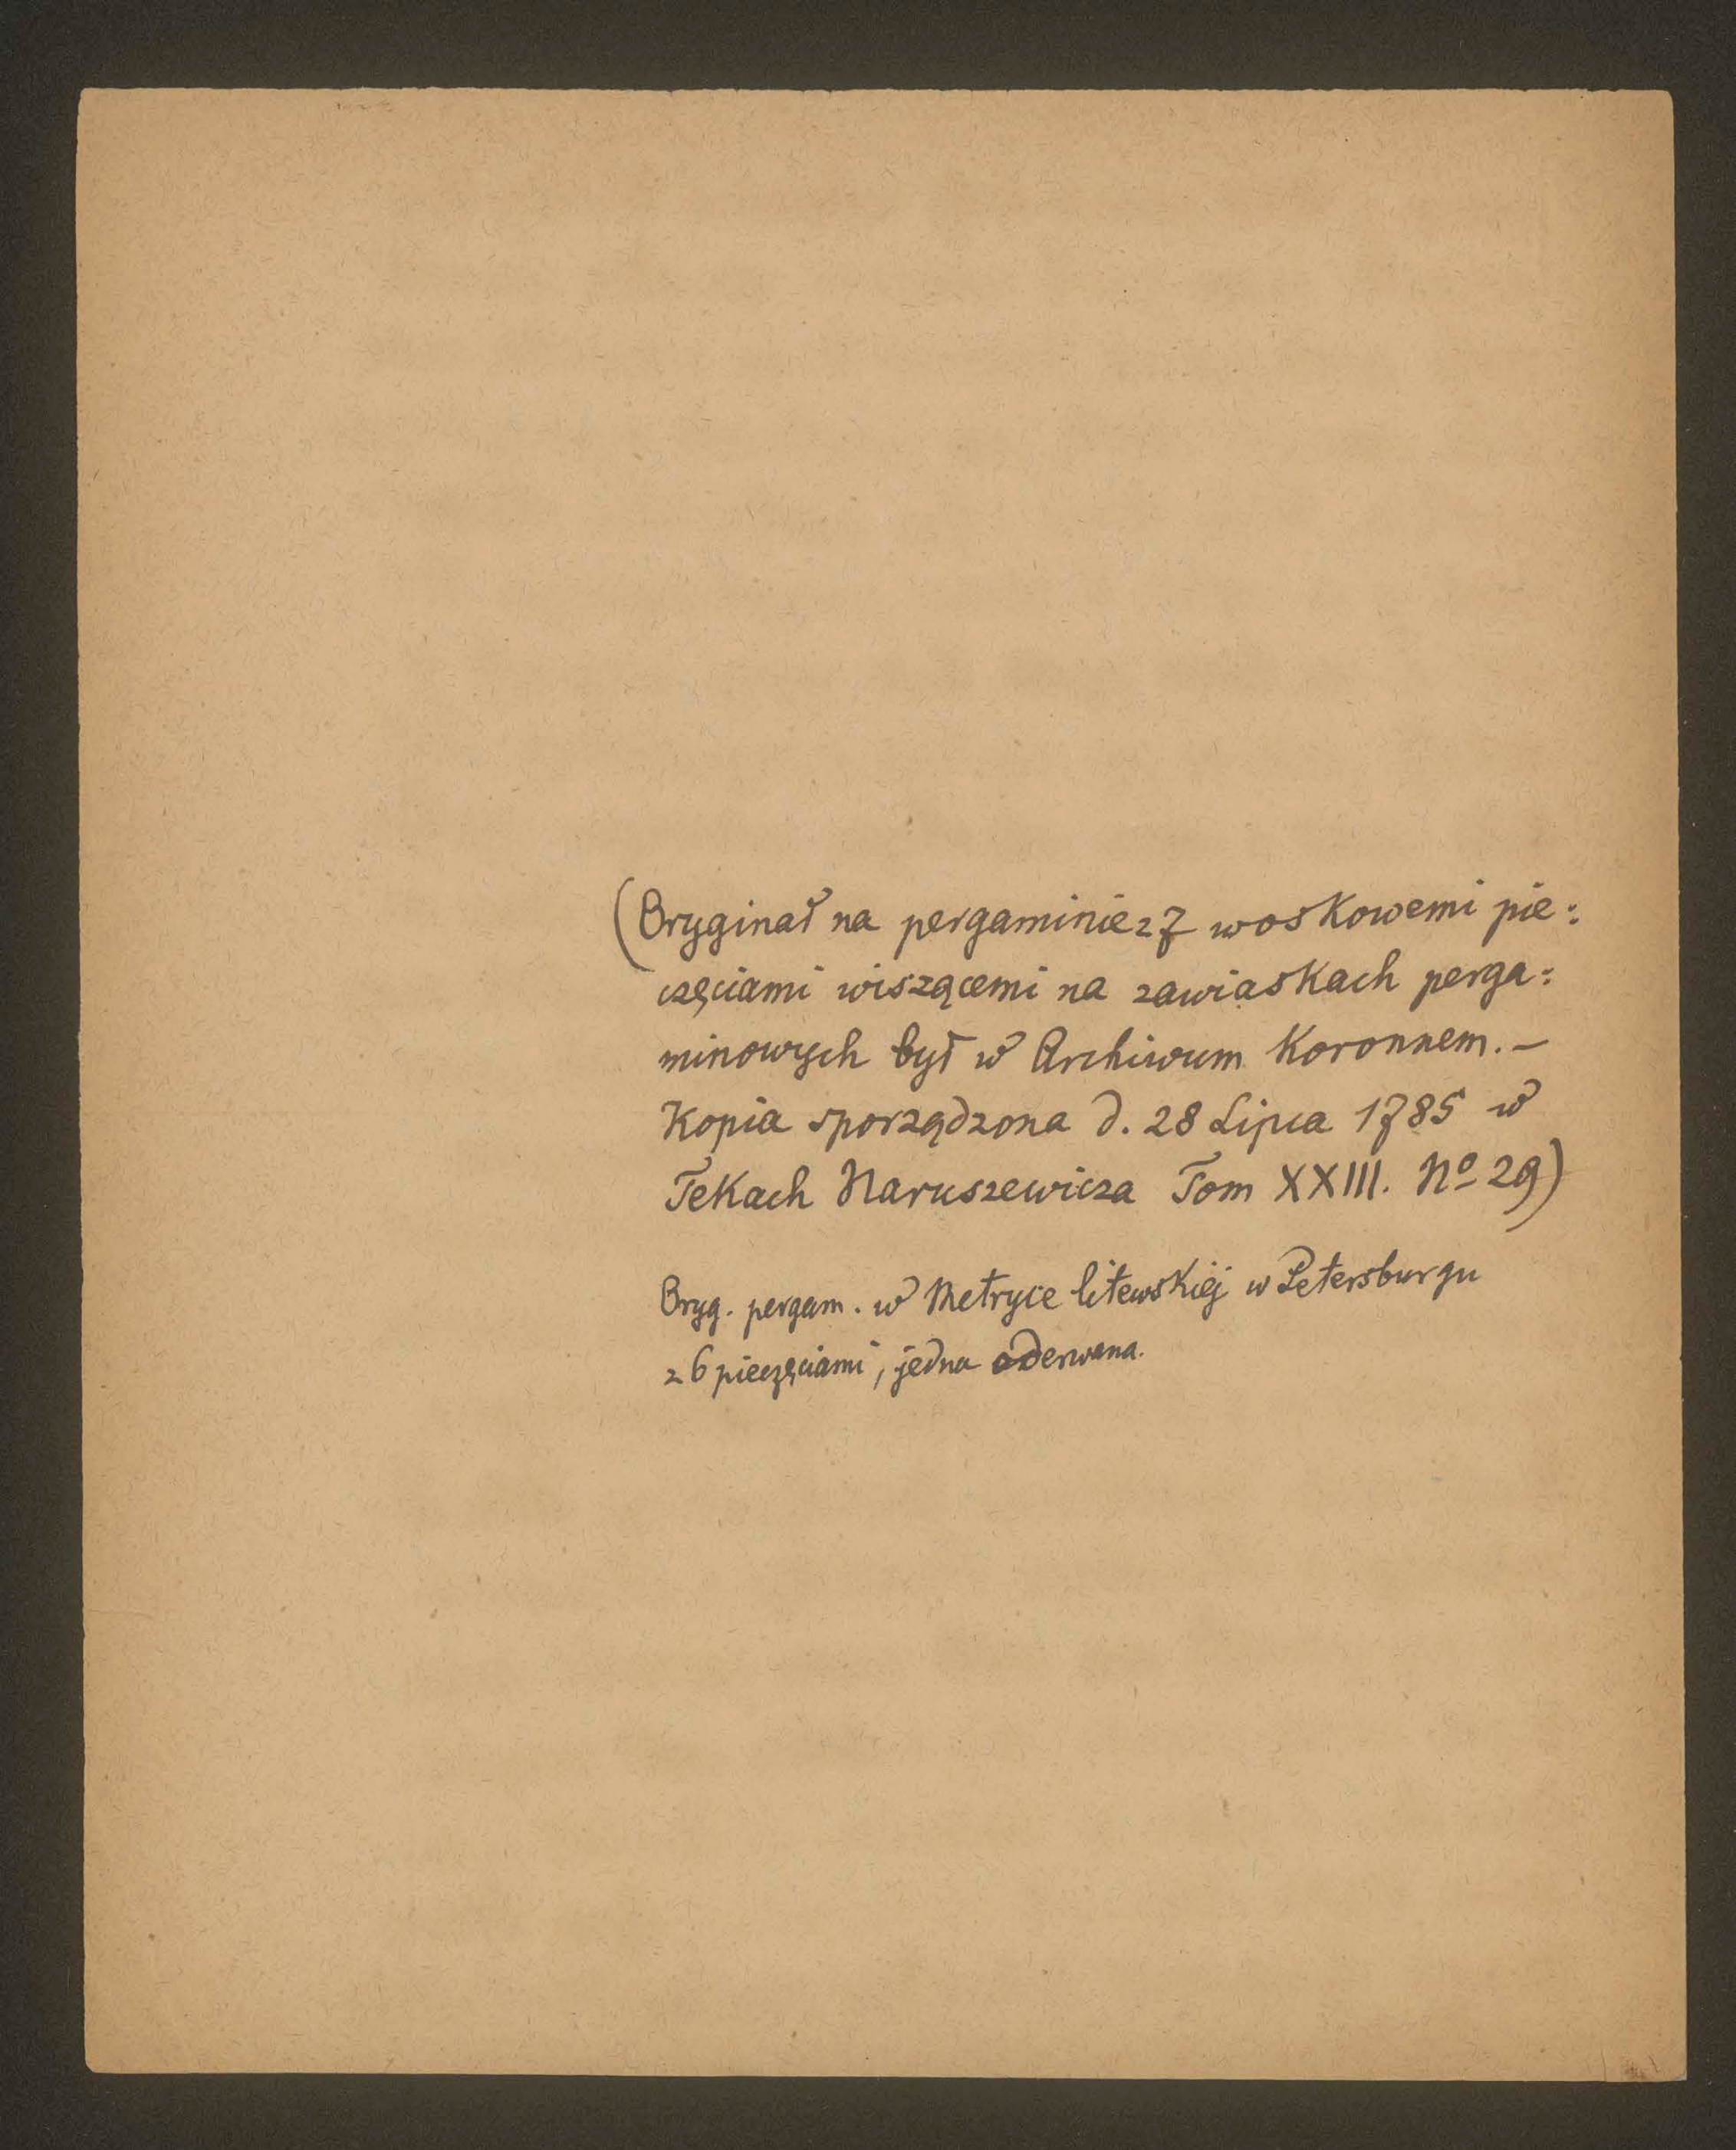 (Oryginał na pergaminie z 7 woskowemi pie:
częciami wiszącemi na zawiaskach perga:
minowych był w Archiwum Koronnem. —
Kopia sporządzona d. 28 Lipca 1785 w
Tekach Naruszewicza Tom XXIII. No 29)
Oryg. pergam. w Metryce litewskiéj w Petersburgu
z 6 pieczęciami, jedna oderwana.